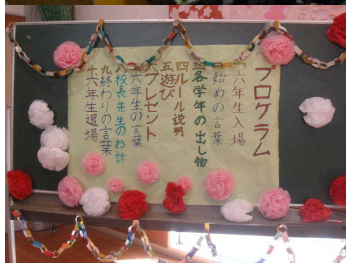 プログラム
一六年生入場
二始めの言葉
三各学年の出し物
四ルール説明
五遊び
六プレゼント
七六年生の言葉
八校長先生のお話
九終わりの言葉
十六年生退場